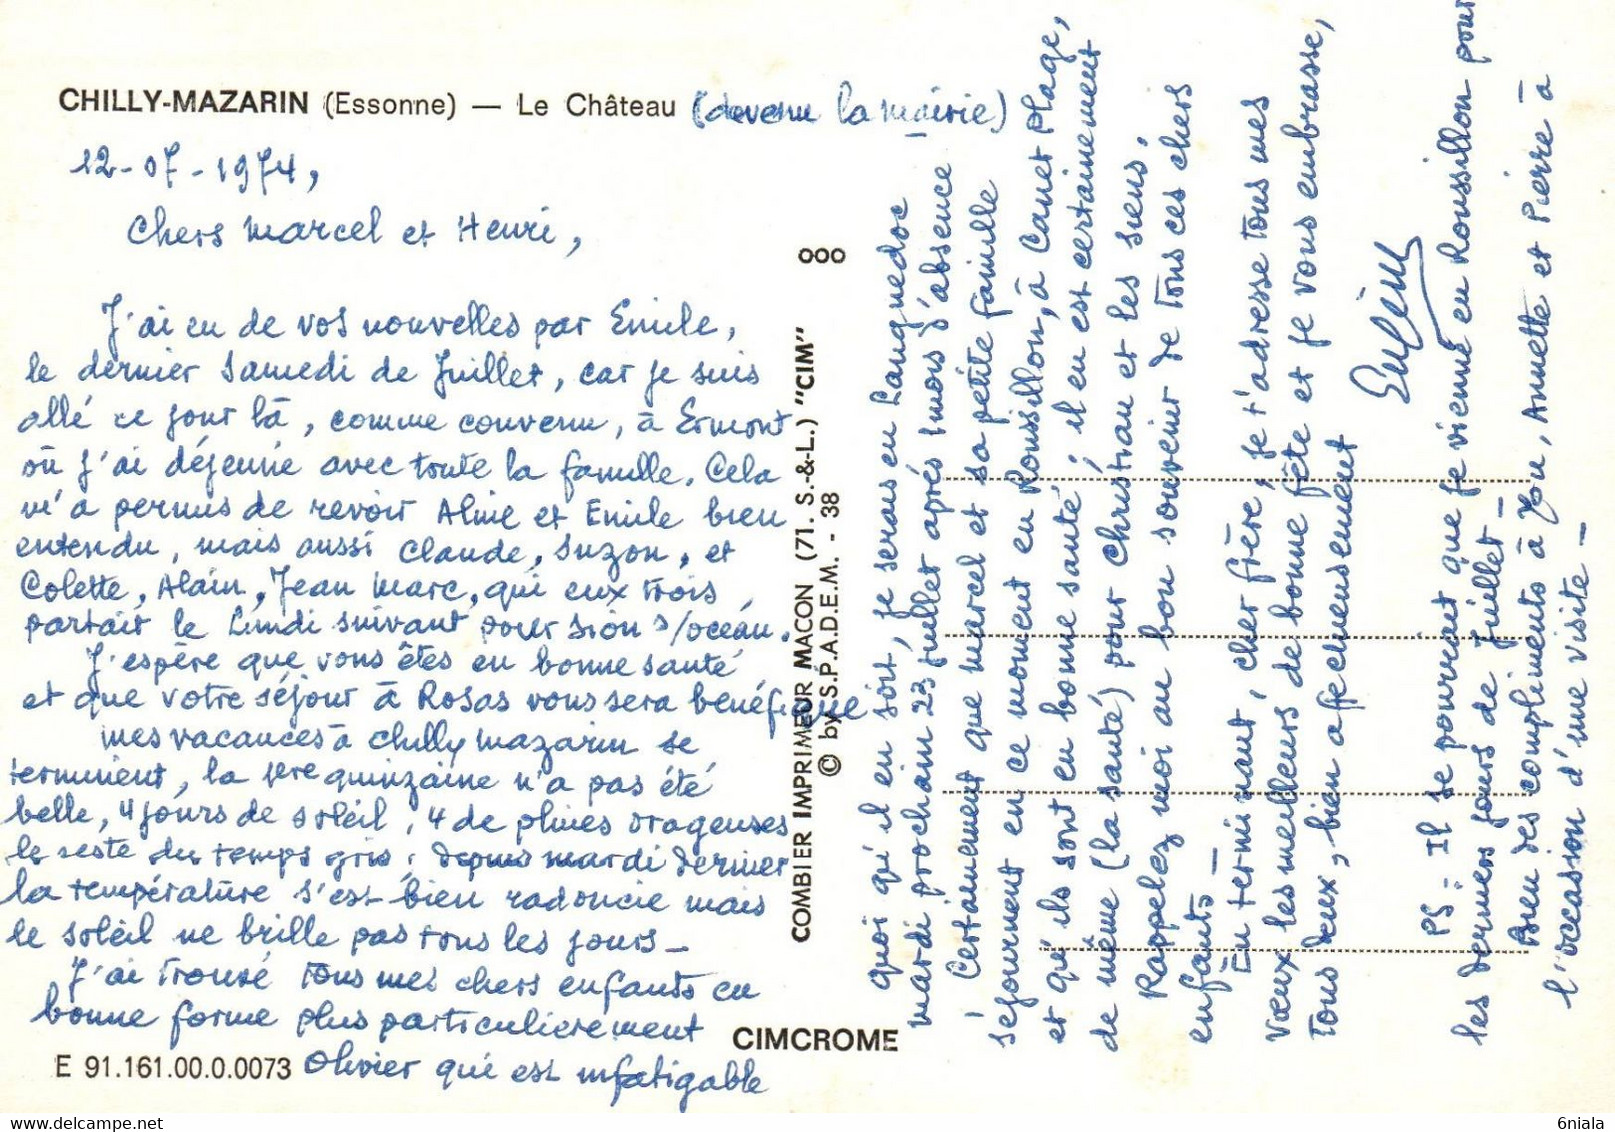 CHILLY-MAZARIN (Essonne) — Le Château (devenu la mairie)
12-07-1974,
Chers Marcel et Henri,
J'ai eu de vos nouvelles par Emile,
le dernier Samedi de Juillet, car je suis
allé ce jour là, comme convenu, à Ermont
où j'ai déjeuné avec toute la famille. Cela
m'a permis de revoir Aline et Emile bien
entendu, mais aussi Claude, Suzon, et
Colette, Alain, Jean Marc, qui eux trois
partait le Lundi suivant pour Sion s/océan.
J'espère que vous êtes en bonne santé
et que votre séjour à Rosas vous sera bénéfique
mes vacances à Chilly Mazarin se
terminent, la 1ere quinzaine n'a pas été
belle, 4 jours de soleil, 4 de pluies orageuses
le reste du temps gris; depuis mardi dernier
la température s'est bien radoucie mais
le soleil ne brille pas tous les jours_
J'ai trouvé tous mes chers enfants en
bonne forme plus particulièrement
Olivier qui est infatigable
E 91.161.00.0.0073
CIMCROME
COMBIER IMPRIMEUR MACON (71. S.-&-L.) "CIM"
© by S.P.A.D.E.M. - 38
quoi qu'il en soit, je serais en Languedoc
mardi prochain 23 juillet après 1 mois d'absence
Certainement que Marcel et sa petite famille
séjournent en ce moment en Roussillon, à Canet Plage,
et qu'ils sont en bonne santé; il en est certainement
de même (la santé) pour Christian et les siens.
Rappelez moi au bon souvenir de tous ces chers
enfants_
En terminant, cher frère, je t'adresse tous mes
vœux les meilleurs de bonne fête et je vous embrasse,
tous deux, bien affectueusement
PS= Il se pourrait que je vienne en Roussillon pour
les derniers jours de Juillet_
Bien des compliments à You, Annette et Pierre à
l'occasion d'une visite_
6niala